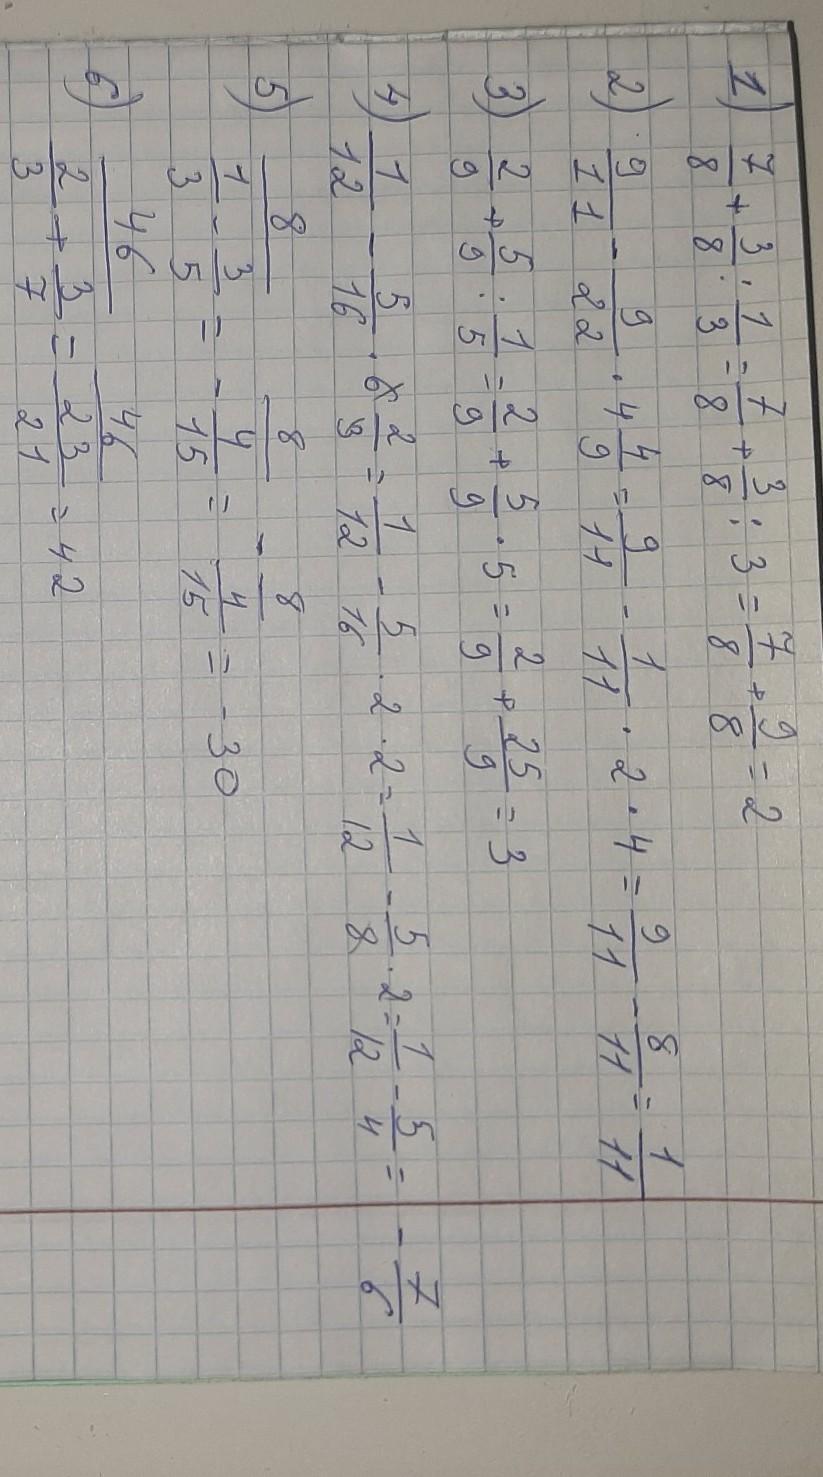 1) 7/8 + 3/8 : 1/3 = 7/8 + 3/8 : 3 = 7/8 + 9/8 = 2
2) 9/11 - 9/22 · 4 4/9 = 9/11 - 1/11 · 2 · 4 = 9/11 - 8/11 = 1/11
3) 2/9 + 5/9 : 1/5 = 2/9 + 5/9 · 5 = 2/9 + 25/9 = 3
4) 1/12 - 5/16 · 2/9 = 1/12 - 5/16 · 2 · 2 = 1/12 - 5/8 · 2 = 1/12 - 5/4 = - 7/6
5) 8/(1/3 - 3/5) = 8/(- 4/15) = - 8/(4/15) = - 30
6) 46/(2/3 + 3/7) = 46/(23/21) = 42